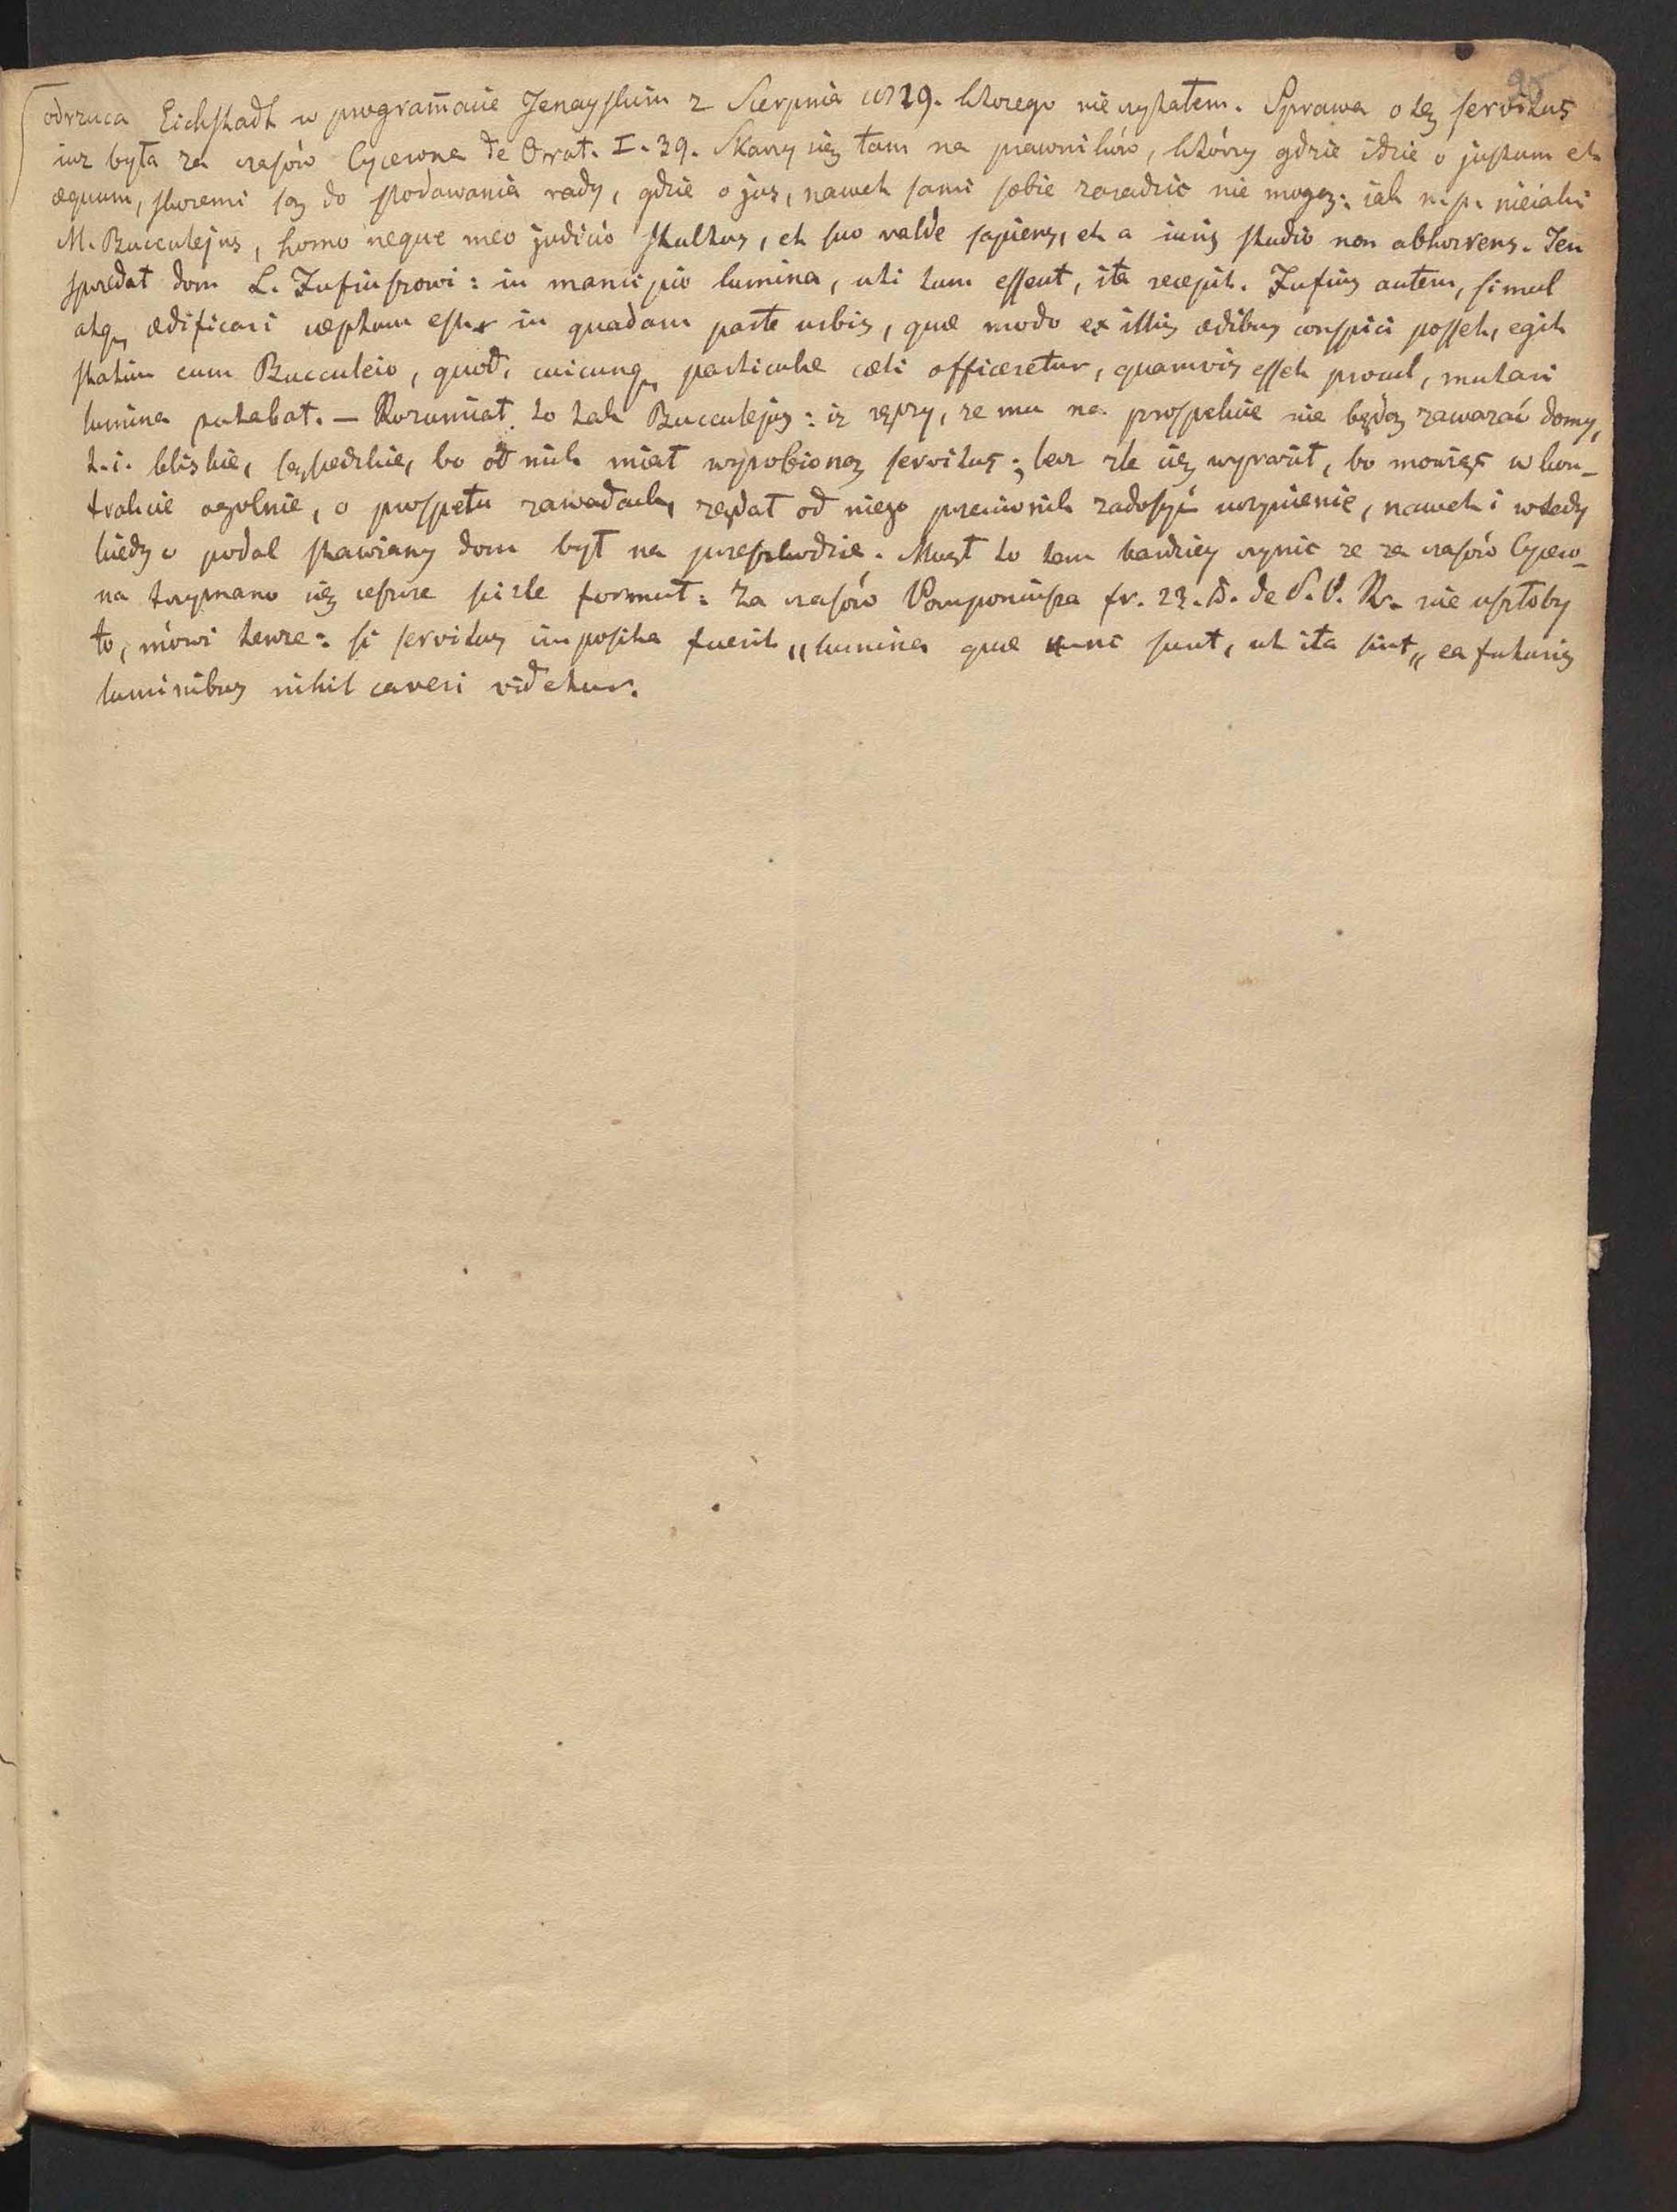 25
odrzuca Eichstadt w programacie Jenayskim z Sierpnia 1829. ktorego nie czytałem. Sprawa o tę servitus
iuz była za czasów Cycerona de Orat. I. 39. Skarzy się tam na prawników, którzy gdzie idzie o justum et
æquum, skoremi są do podawania rady, gdzie o jus, nawet sami sobie zaradzic nie mogą: iak n.p. nieiaki
M. Bucculejus, homo neque meo judicio stultus, et suo valde sapiens, et a iuris studio non abhorrens. Ten
spredał dom L. Fufiuszowi: in mancipio lumina, uti tum essent, ita recepit. Fufius autem, simul
atq. ædificari cæptum est in quadam parte urbis, quæ modo ex illis ædibus conspici posset, egit
statim cum Bucculeio, quod, cuicunq. particulæ cæli officeretur, quamvis esset procul, mutari
lumina putabat. — Rozumiał to tak Bucculejus: iz ręczy, ze mu na prospekcie nie będą zawazać domy,
t.i. bliskie, sąsiedzkie, bo od nich miał wyrobioną servitus; lecz zle się wyraził, bo mowiąc w kon-
trakcie ogolnie, o prospetu zawadach, ządał od niego przeciwnik zadosyć uczynienie, nawet i wtedy
kiedy o podal stawiany dom był na przeszkodzie. Mógł to tem bardziey czynic ze za czasów Cycero-
na trzymano się ieszcze scisle formuł: Za czasów Pomponiusza fr. 23. D. de S. P. Ur. nie uszłoby
to, mówi tenze: si servitus imposita fuerit „lumina quæ nunc sunt, ut ita sint„ ea futuris
luminibus nihil caveri videtur.